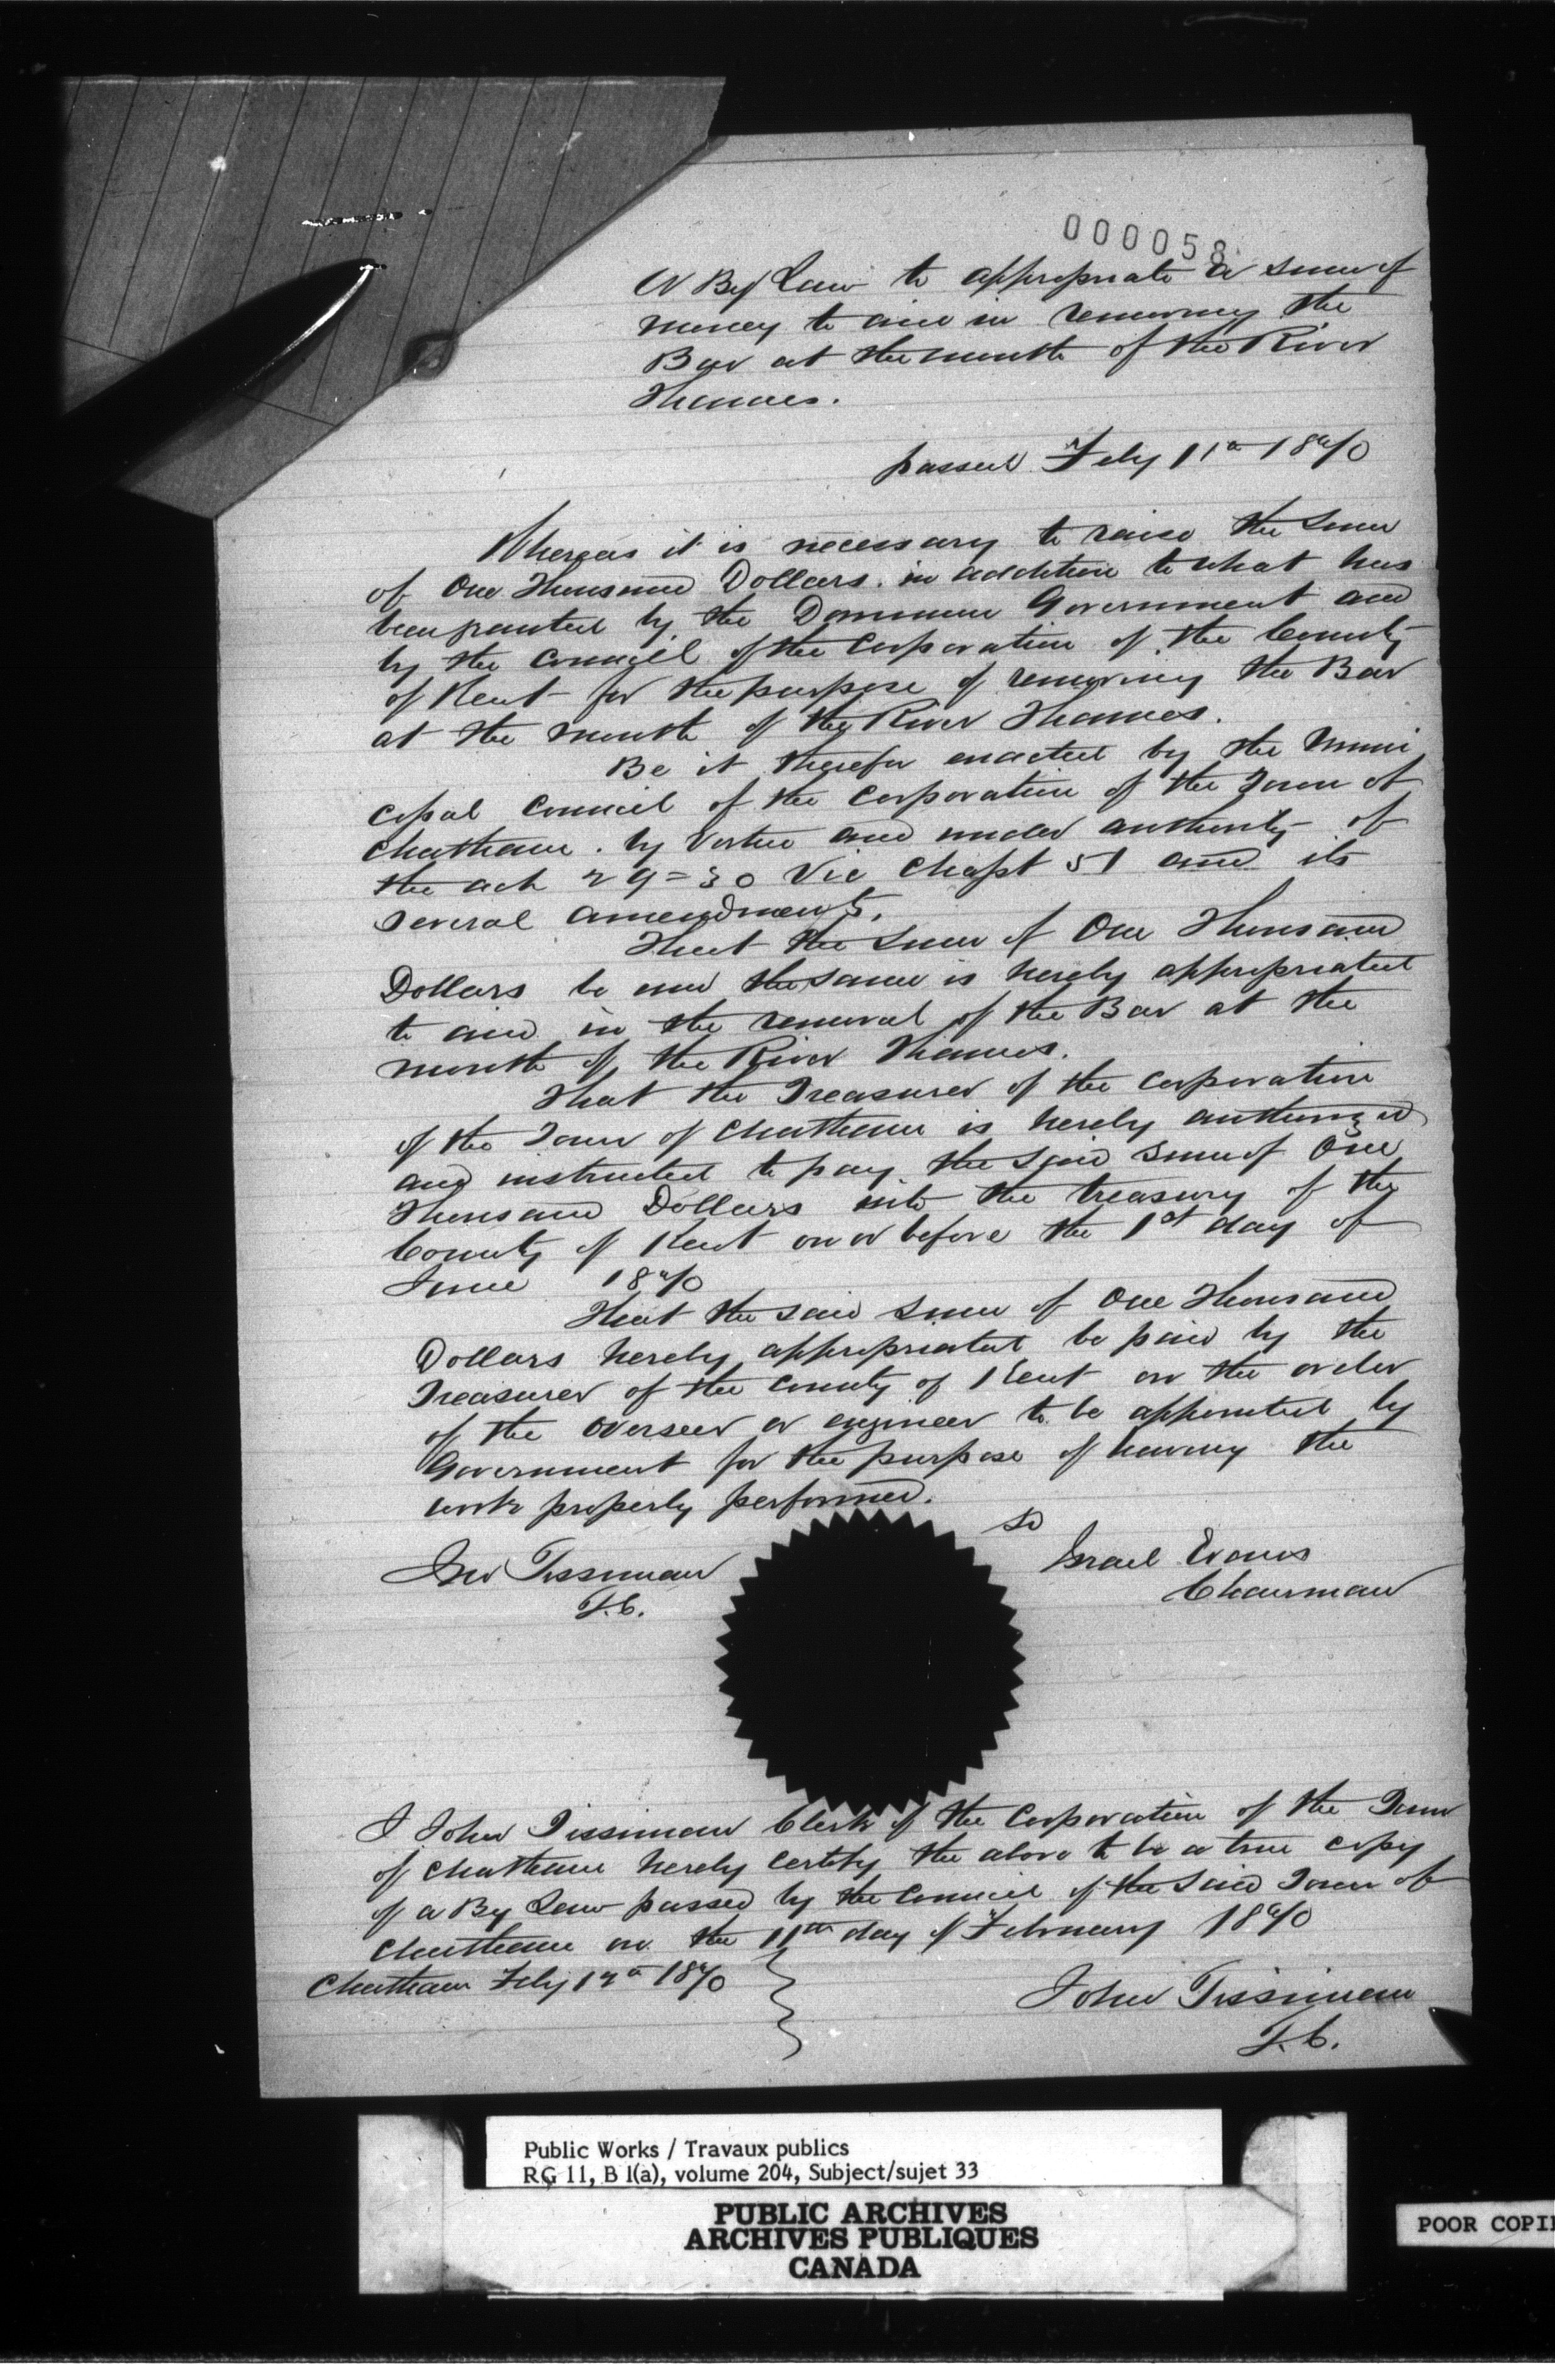 000058
A By Law to appropriate a sum of
money to aid in removing the
Bar at the mouth of the River
Thames.
passed Feby 11th 1870
Whereas it is necessary to raise the sum
of One Thousand Dollars. in addition to what has
been granted by the Dominion Government and
by the Council of the Corporation of the County
of Kent for the purpose of removing the Bar
at the mouth of the River Thames.
Be it therefor enacted by the Muni
cipal Council of the Corporation of the Town of
Chatham. by Vertue and under authority of
the act 29=30 Vic Chapt 51 and its
several amendments.
That the sum of One Thousand
Dollars be and the same is hereby appropriated
to aid in the removal of the Bar at the
mouth of the River Thames.
That the Treasurer of the Corporation
of the Town of Chatham is hereby authorized
and instructed to pay the said sum of One
Thousand Dollars into the treasury of the
County of Kent on or before the 1st day of
June 1870
That the said sum of One Thousand
Dollars hereby appropriated be paid by the
Treasurer of the County of Kent on the order
of the overseer or engineer to be appointed by
Government for the purpose of having the
work properly performed.
Jno Tissiman
T.C.
Sd
Israel Evans
Chairman
I John Tissiman Clerk of the Corporation of the Town
of Chatham hereby certify the above to be a true copy
of a By Law passed by the Council of the Said Town of
Chatham on the 11th day of February 1870
Chatham Feby 12th 1870
John Tissiman
T.C.
Public Works / Travaux publics
RG 11, B 1(a), volume 204, Subject/sujet 33
PUBLIC ARCHIVES
ARCHIVES PUBLIQUES
CANADA
POOR COPI